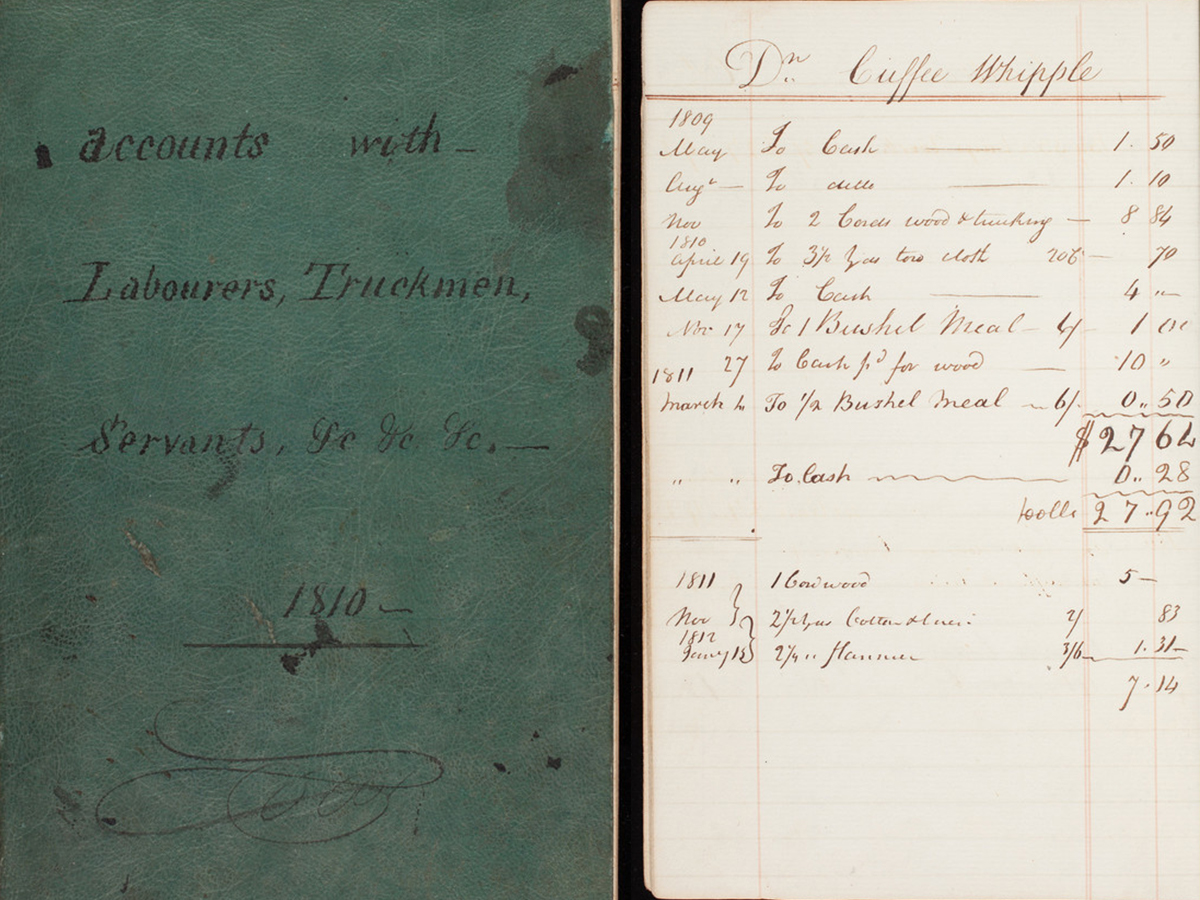 accounts with –
Labourers, Truckmen,
Servants, &c &c &c. —
1810 –
Dr. Cuffee Whipple
1809
May To Cash 1. 50
Augt — To ditto 1. 10
Nov To 2 Cords wood & trucking — 8 84
1810
April 19 To 3 1/2 yds tow cloth 20c — 70
May 12 To Cash 4 "
Nov 17 To 1 Bushel Meal — 6/ 1 00
27 To Cash pd for wood — 10 "
1811
March To 1/2 Bushel Meal — 6/ 0.. 50
$27 64
" " To Cash 0.. 28
27..92
1811 1 Cord wood 5 —
Nov 2 1/2 yds Cotton & 2/ 83
1812
Jany 18 2 1/4 " flannel 3/6 1. 31
7. 14